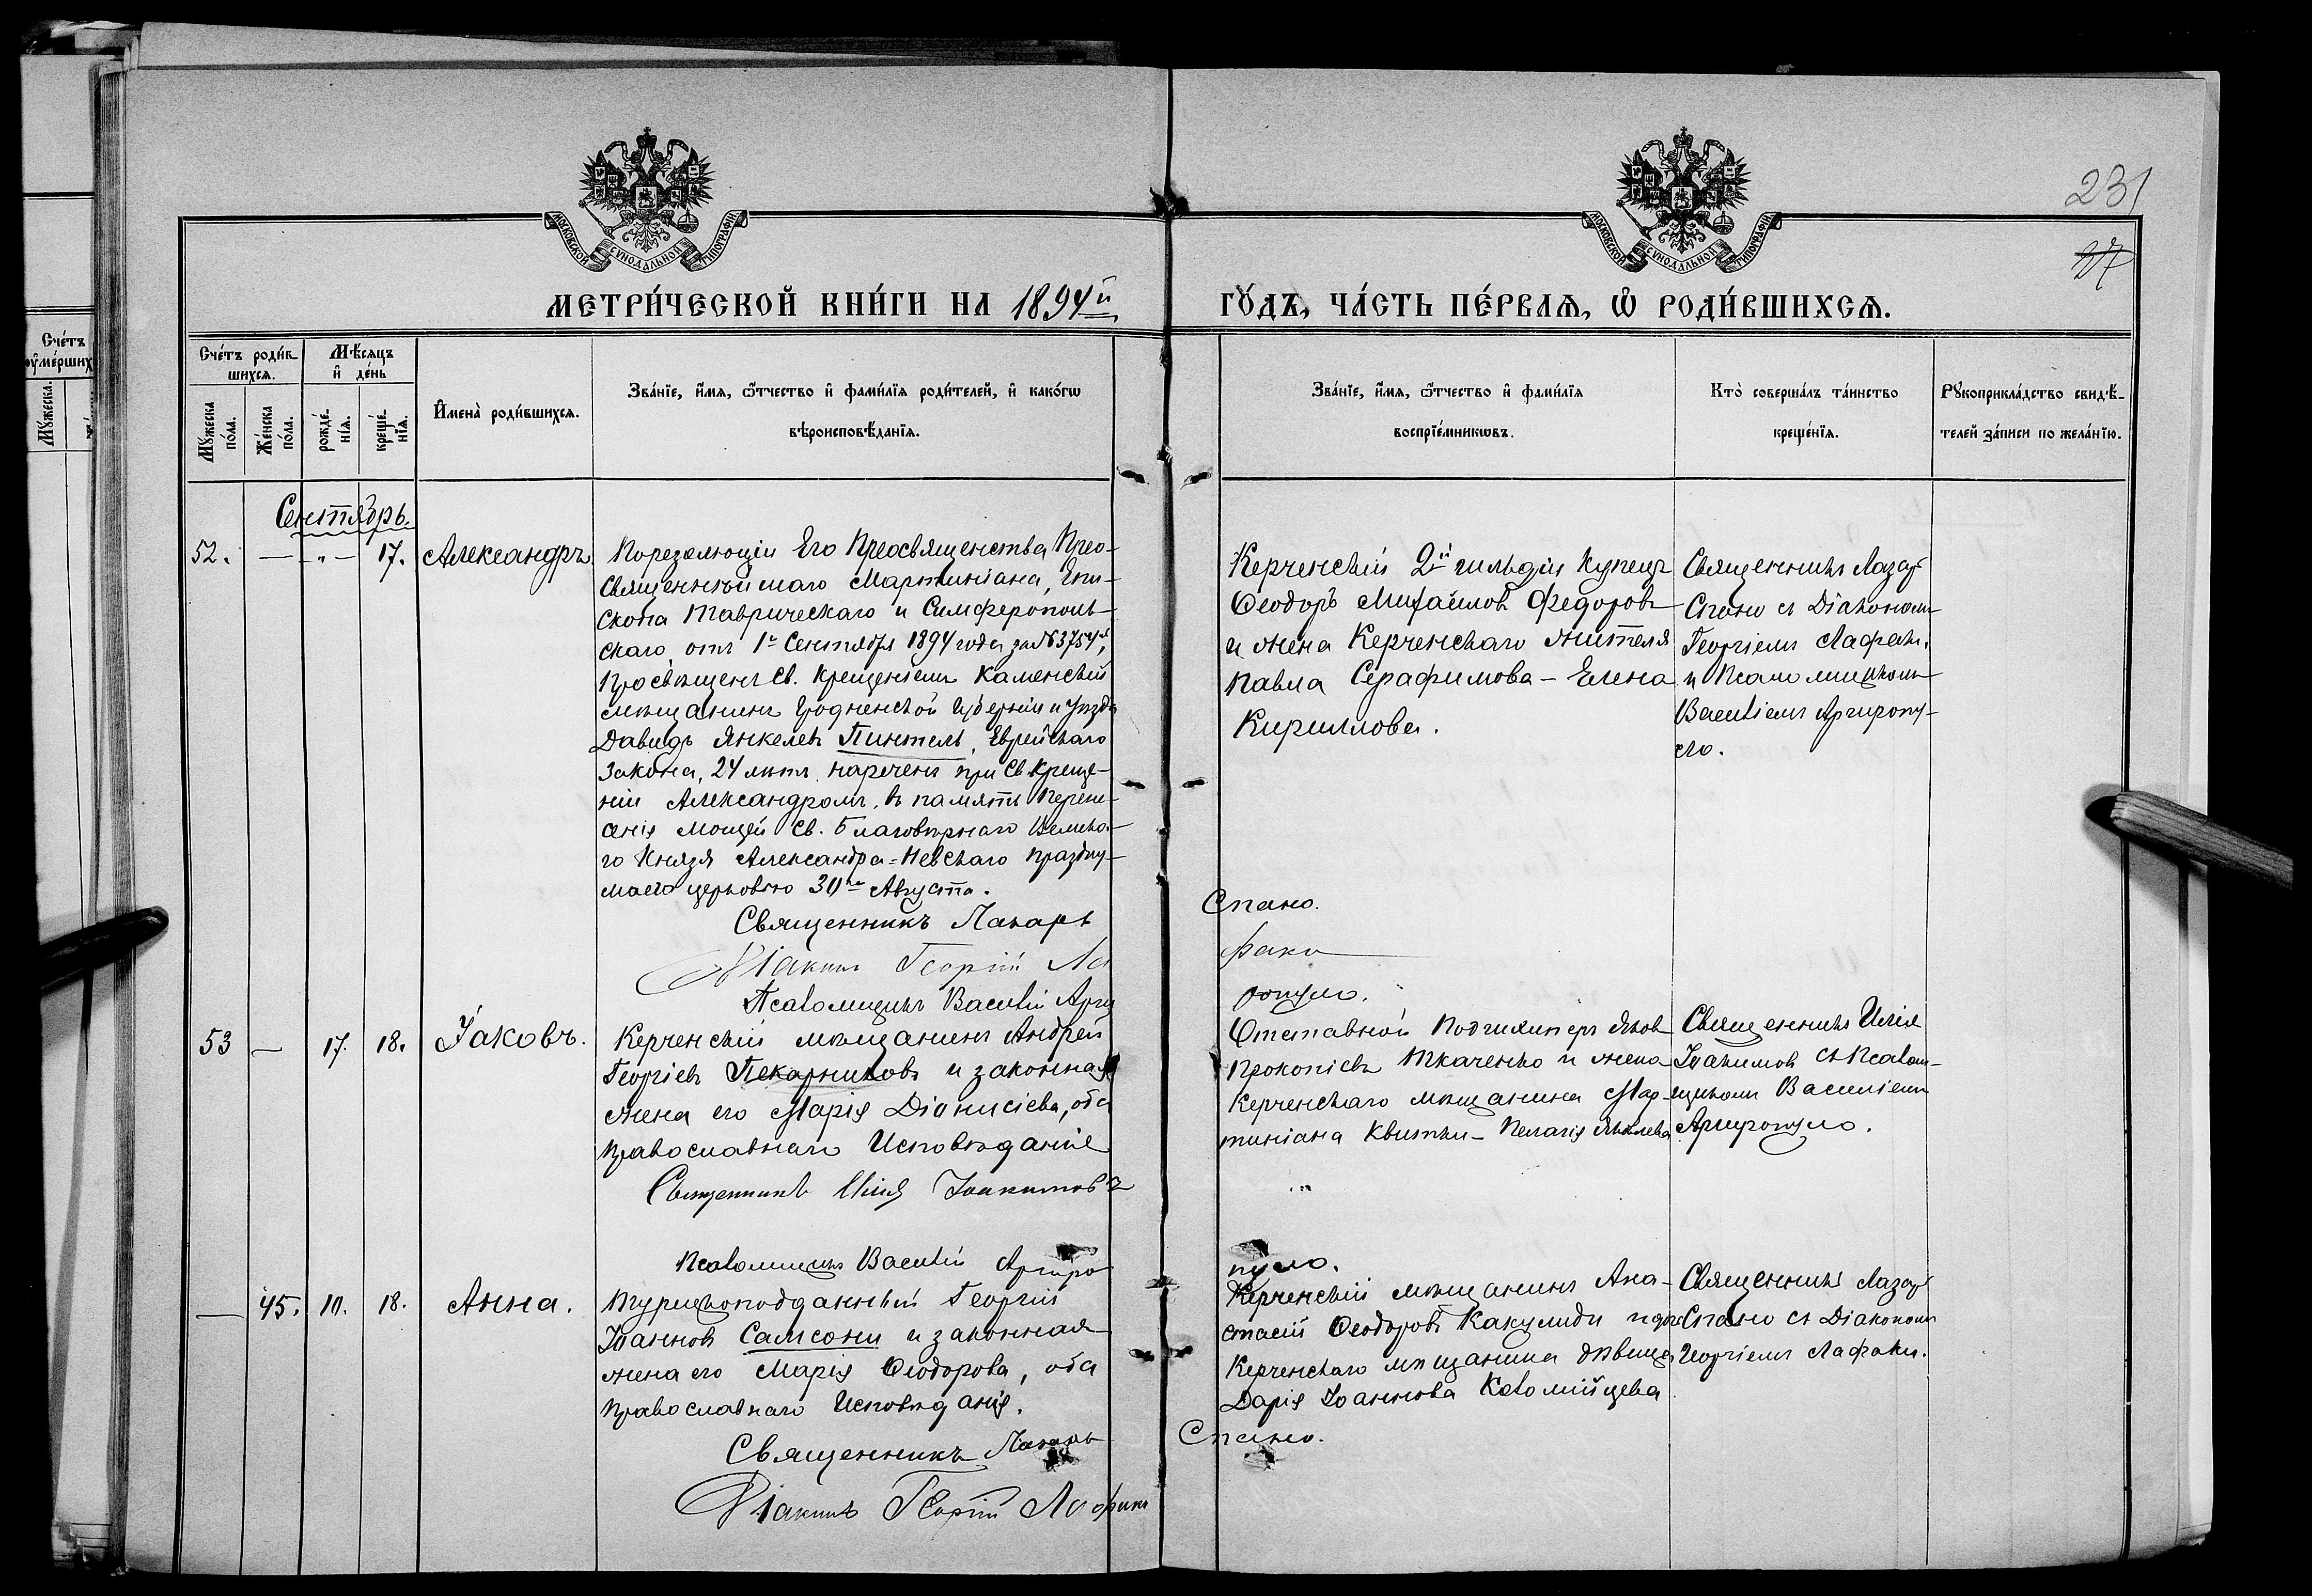 231
27
МЕТРИ́ЧЕСКОЙ КНИ́ГИ НА 1894й
ГО́ДЪ, ЧА́СТЬ ПЕ́РВАѦ, Ѡ҆ РОДИ́ВШИХСѦ.
Сче́тъ
ᲂу҆ме́рших
Мꙋ́жеска.
Сче́тъ роди́в-
шихсѧ.
Мѣ́сѧцъ
и҆ де́нь
Мꙋ́жеска
по́ла.
Же́нска
по́ла.
рожде́-
нїѧ.
креще́-
нїѧ.
И҆мена̀ роди́вшихсѧ.
Зва́нїе, и҆́мѧ, ѻ҆́тчество и҆ фами́лїѧ роди́телей, и҆ како́гѡ
вѣроисповѣ́данїѧ.
Зва́нїе, и҆́мѧ, ѻ҆́тчество и҆ фами́лїѧ
воспрїе́мникѡвъ.
Кто̀ соверша́лъ та́инство
креще́нїѧ.
Рꙋкоприкла́дство свидѣ́-
телей за́писи по жела́нїю.
Сентябрь.
52. — „ — 17. Александръ
По резолюціи Его Преосвященства, Прео-
священнѣйшаго Мартиніана, Епи-
скопа Таврическаго и Симферополь-
скаго, отъ 1го Сентября 1894 года за №3754й,
просвѣщенъ св. крещеніемъ Каменскій
мѣщанинъ Гродненской губерніи и уѣзда
Давидъ Янкелевъ Пинтель, Еврейскаго
закона, 24 лѣтъ, нареченъ при св. креще-
ніи Александромъ, въ память перене-
сенія мощей св. Благовѣрнаго Велика-
го Князя Александра=Невскаго праздну-
маго церковью 30го Августа.
Священникъ Лазарь
Спано.
Діаконъ Георгій Ла
факи
Псаломщикъ Василій Аргу
ропуло.
Керченскій 2й гильдіи купецъ
Ѳеодоръ Михайловъ Федоровъ
и жена Керченскаго жителя
Павла Серафимова – Елена
Кириллова.
Священникъ Лазарь
Спано съ Діакономъ
Георгіемъ Лафаки
и Псаломщикомъ
Василіемъ Аргиропу-
ло.
53 — 17. 18. Іаковъ.
Керченскій мѣщанинъ Андрей
Георгіевъ Пекарниковъ и законная
жена его Марія Діонисіева, оба
православнаго Исповѣданія
Священникъ Илія Іоакимовъ
Псаломщикъ Василій Аргиро
пуло.
Отставной Яковъ
Прокопіевъ Ткаченко и жена
Керченскаго мѣщанина Мар-
тиніана Квитки – Пелагія Яковлева
Священникъ Илія
Іоакимовъ съ Псалом-
щикомъ Василіемъ
Аргиропуло.
— 45. 10. 18. Анна.
Турецкоподданный Георгій
Іоанновъ Самсони и законная
жена его Марія Ѳеодорова, оба
православнаго Исповѣданія.
Священникъ Лазарь
Спано.
Діаконъ Георгій Лафаки
Керченскій мѣщанинъ Ана-
стасій Ѳеодоровъ Какулиди и дочь
Керченскаго мѣщанина дѣвица
Дарія Іоаннова Коломійцева
Священникъ Лазарь
Спано съ Діакономъ
Георгіемъ Лафаки.